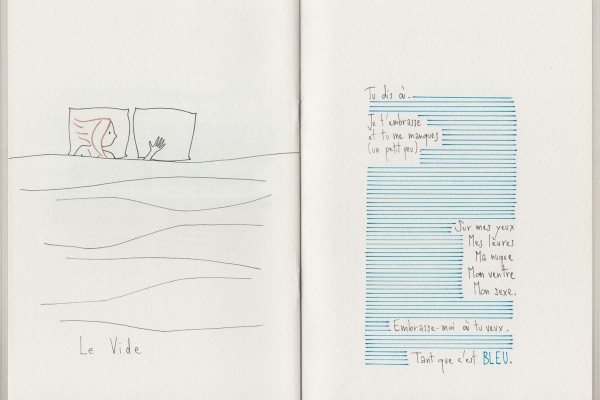 Le Vide
Tu dis où.
Je t'embrasse
et tu me manques
(un petit peu).
Sur mes yeux
Mes lèvres
Ma nuque
Mon ventre
Mon sexe.
Embrasse-moi où tu veux.
Tant que c'est BLEU.